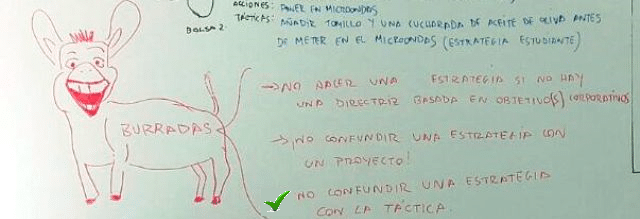 ACCIONES: PONER EN MICROONDAS
BOLSA 2. TÁCTICAS: AÑADIR TOMILLO Y UNA CUCHARADA DE ACEITE DE OLIVA ANTES
DE METER EN EL MICROONDAS (ESTRATEGIA ESTUDIANTE)
→ NO HACER UNA ESTRATEGIA SI NO HAY
UNA DIRECTRIZ BASADA EN OBJETIVO(S) CORPORATIVOS
BURRADAS
→ ¡NO CONFUNDIR UNA ESTRATEGIA CON
UN PROYECTO!
NO CONFUNDIR UNA ESTRATEGIA
CON LA TÁCTICA.